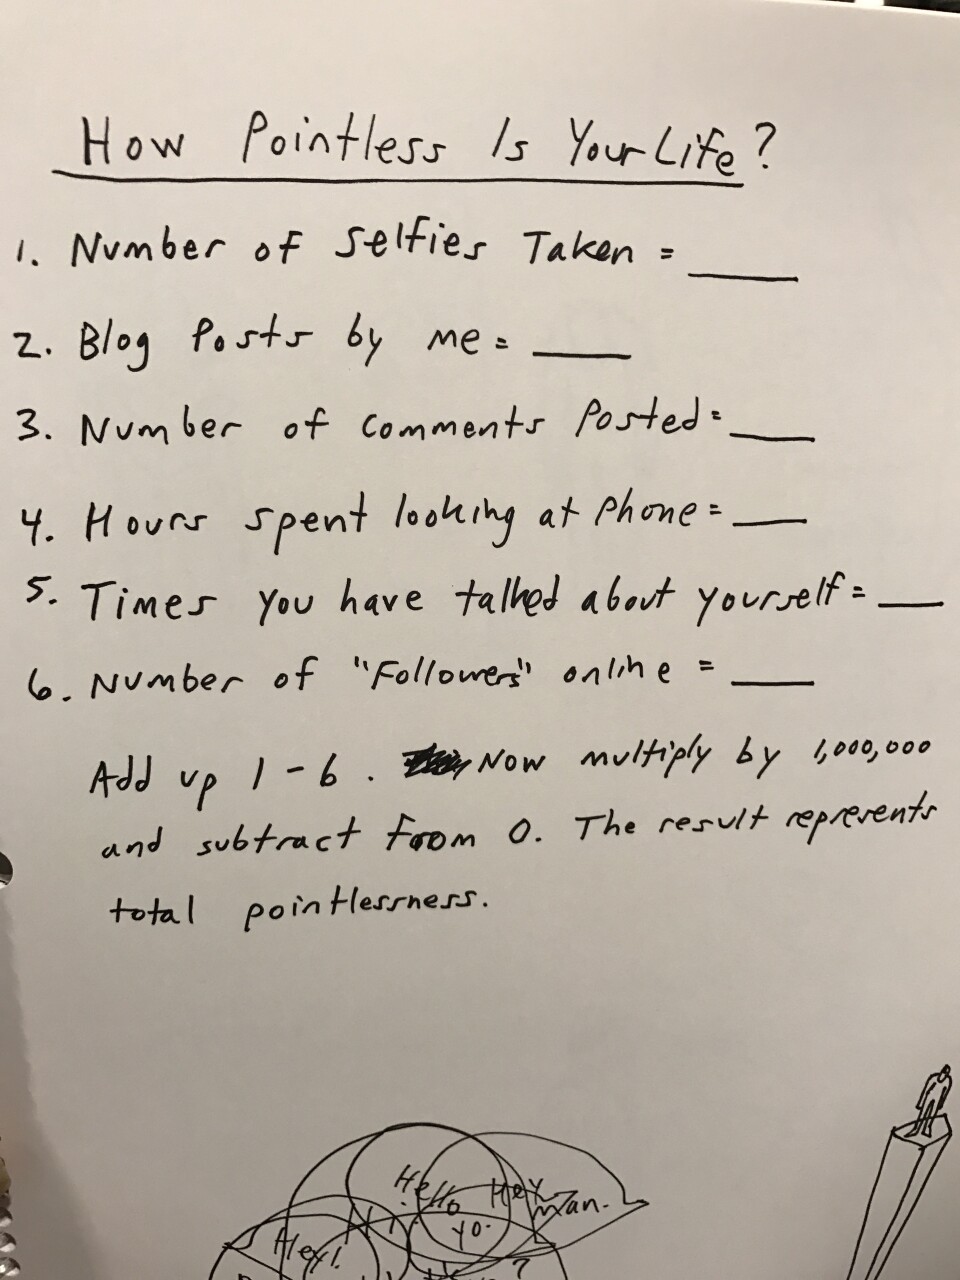 How Pointless Is Your Life?
1. Number of Selfies Taken = ____
2. Blog Posts by me = ____
3. Number of comments Posted = ____
4. Hours spent looking at phone = ____
5. Times you have talked about yourself = ____
6. Number of "Followers" online = ____
Add up 1-6. Now multiply by 1,000,000
and subtract from 0. The result represents
total pointlessness.
Hello Hey man.
yo.
Hey!
?